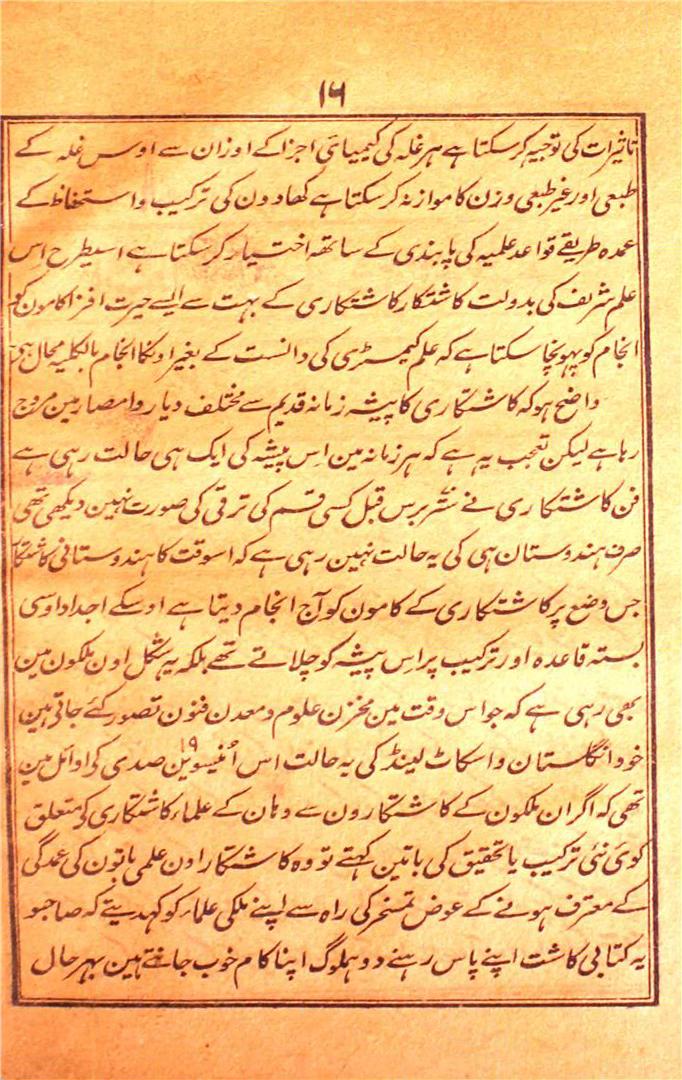 ۱۶
تاثیرات کی توجیہ کر سکتا ہے ہر غلہ کی کیمیائی اجزا کے اوزان سے اوس غلہ کے
طبعی اور غیر طبعی وزن کا موازنہ کر سکتا ہے کھادون کی ترکیب و استحفاظ کے
عمدہ طریقے قواعد علمیہ کی پابندی کے ساتھ اختیار کر سکتا ہے اسیطرح اس
علم شریف کی بدولت کاشتکار کاشتکاری کے بہت سے ایسے حیرت افزا کامون کو
انجام کو پہونچا سکتا ہے کہ علم کیمسٹری کی دانست کے بغیر اونکا انجام بالکلیہ محال ہی
واضح ہو کہ کاشتکاری کا پیشہ زمانہ قدیم سے مختلف دیار و امصار مین مروج
رہا ہے لیکن تعجب یہ ہے کہ ہر زمانہ مین اس پیشہ کی ایک ہی حالت رہی ہے
فن کاشتکاری نے ستر برس قبل کسی قسم کی ترقی کی صورت نہین دیکھی تھی
صرف ہندوستان ہی کی یہ حالت نہین رہی ہے کہ اسوقت کا ہندوستانی کاشتکا
جس وضع پر کاشتکاری کے کامون کو آج انجام دیتا ہے اوسکے اجداد اوسی
بستہ قاعدہ اور ترکیب پر اس پیشہ کو چلاتے تھے بلکہ یہ شکل اون ملکون مین
بھی رہی ہے کہ جو اس وقت مین مخزن علوم و معدن فنون تصور کئے جاتی ہین
خود انگلستان و اسکاٹ لینڈ کی یہ حالت اس اُنیسوین ۱۹ صدی کی اوائل مین
تھی کہ اگر ان ملکون کے کاشتکارون سے وہان کے علماء کاشتکاری کی متعلق
کوئی نئی ترکیب یا تحقیق کی باتین کہتے تو وہ کاشتکار اون علمی باتون کی عمدگی
کے معترف ہونے کے عوض تمسخر کی راہ سے اپنے ملکی علماء کو کہدیتے کہ صاحبو
یہ کتابی کاشت اپنے پاس رہنے دو ہملوگ اپنا کام خوب جانتے ہین بہر حال